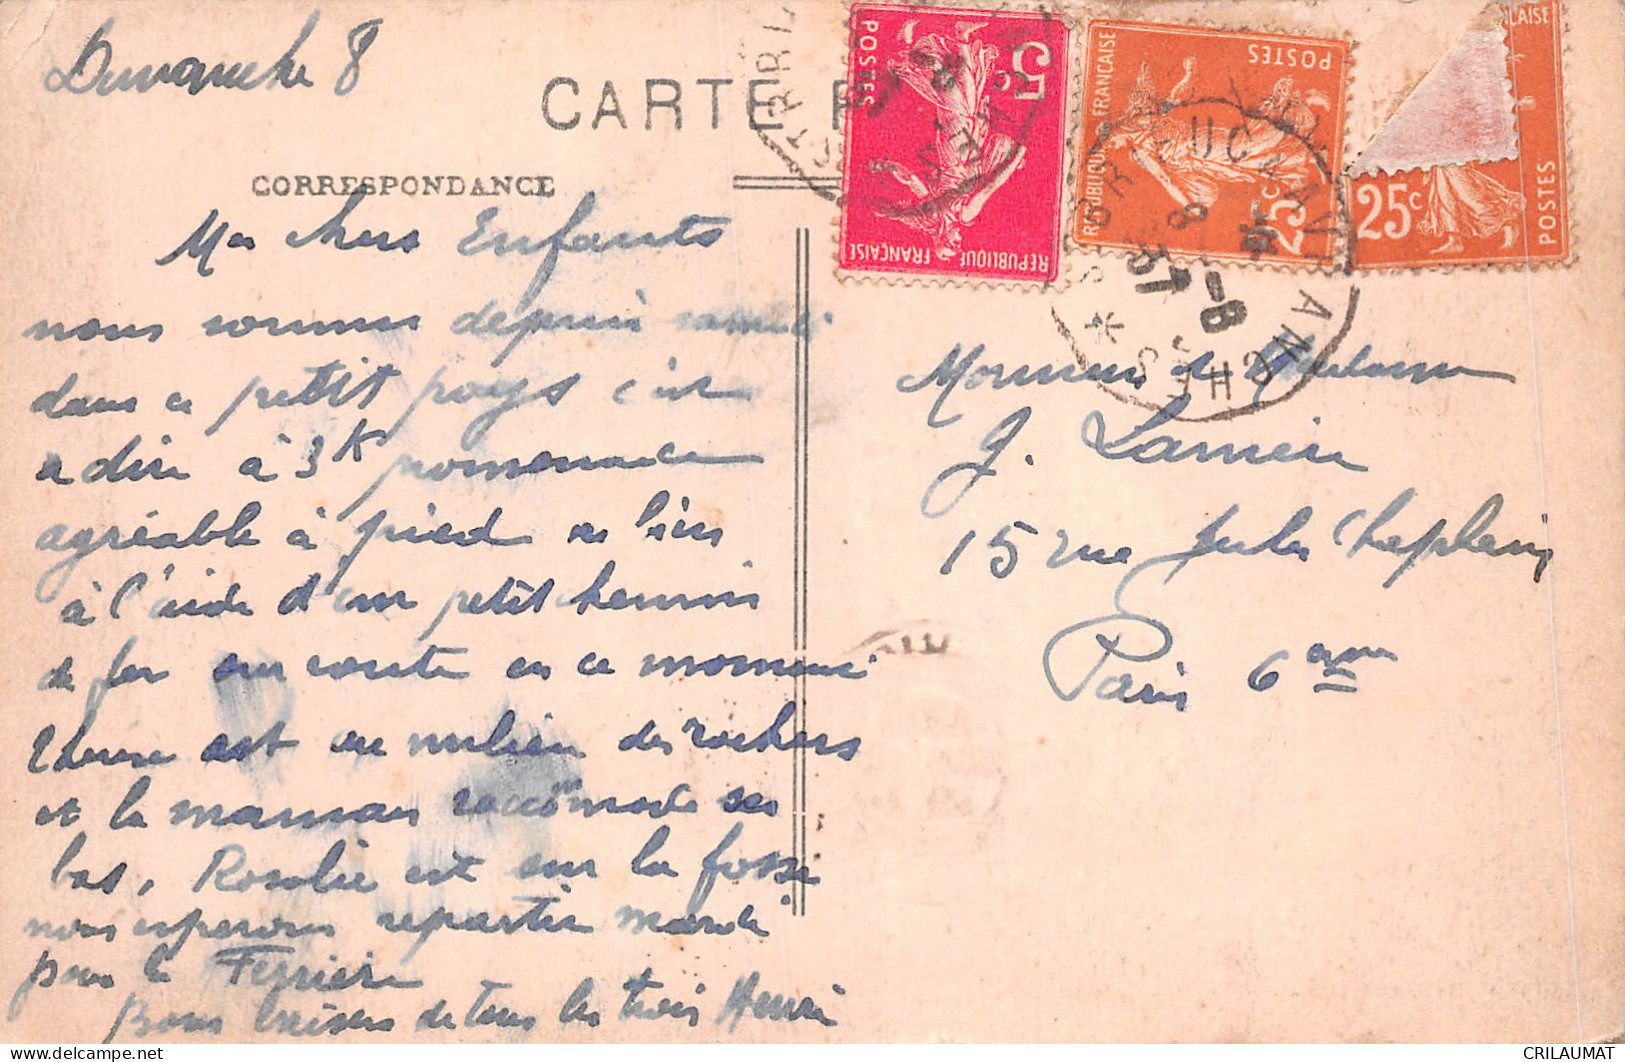 Dimanche 8
CARTE P
CORRESPONDANCE
Mes chers Enfants
nous sommes depuis samedi
dans ce petit pays c'est
a dire à 3K promenade
agréable à pied ou bien
à l'aide d'un petit chemin
de fer sur route en ce moment
Therese est au milieu des rochers
et la maman raccomode ses
bas, Rosalie est sur la fosse
nous esperons repartir mardi
pour la Ferriere
Bons baisers de tous les trois Henri
POSTES
5c
REPUBLIQUE FRANÇAISE
REPUBLIQUE FRANÇAISE
POSTES
25c
LAISE
25c
POSTES
ST BRIEUC A AVRANCHES
8 -8
37
Monsieur et Madame
J. Larrieu
15 rue Jules Chaplain
Paris 6eme
CRILAUMAT